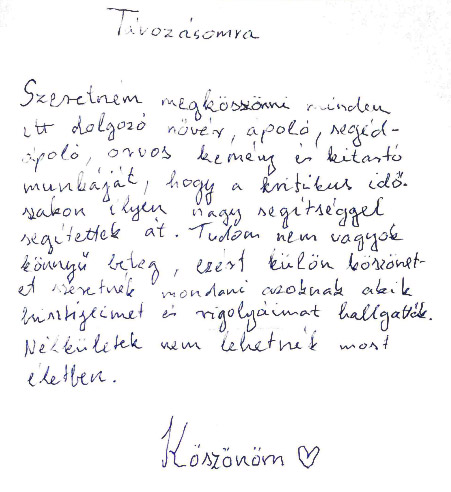 Távozásomra
Szeretném megköszönni minden
itt dolgozó nővér, ápoló, segéd-
ápoló, orvos kemény és kitartó
munkáját, hogy a kritikus idő-
szakon ilyen nagy segítséggel
segítettek át. Tudom nem vagyok
könnyű beteg, ezért külön köszönet-
et szeretnék mondani azoknak akik
hisztijeimet és rigolyáimat hallgatták.
Nélkületek nem lehetnék most
életben.
Köszönöm ♡